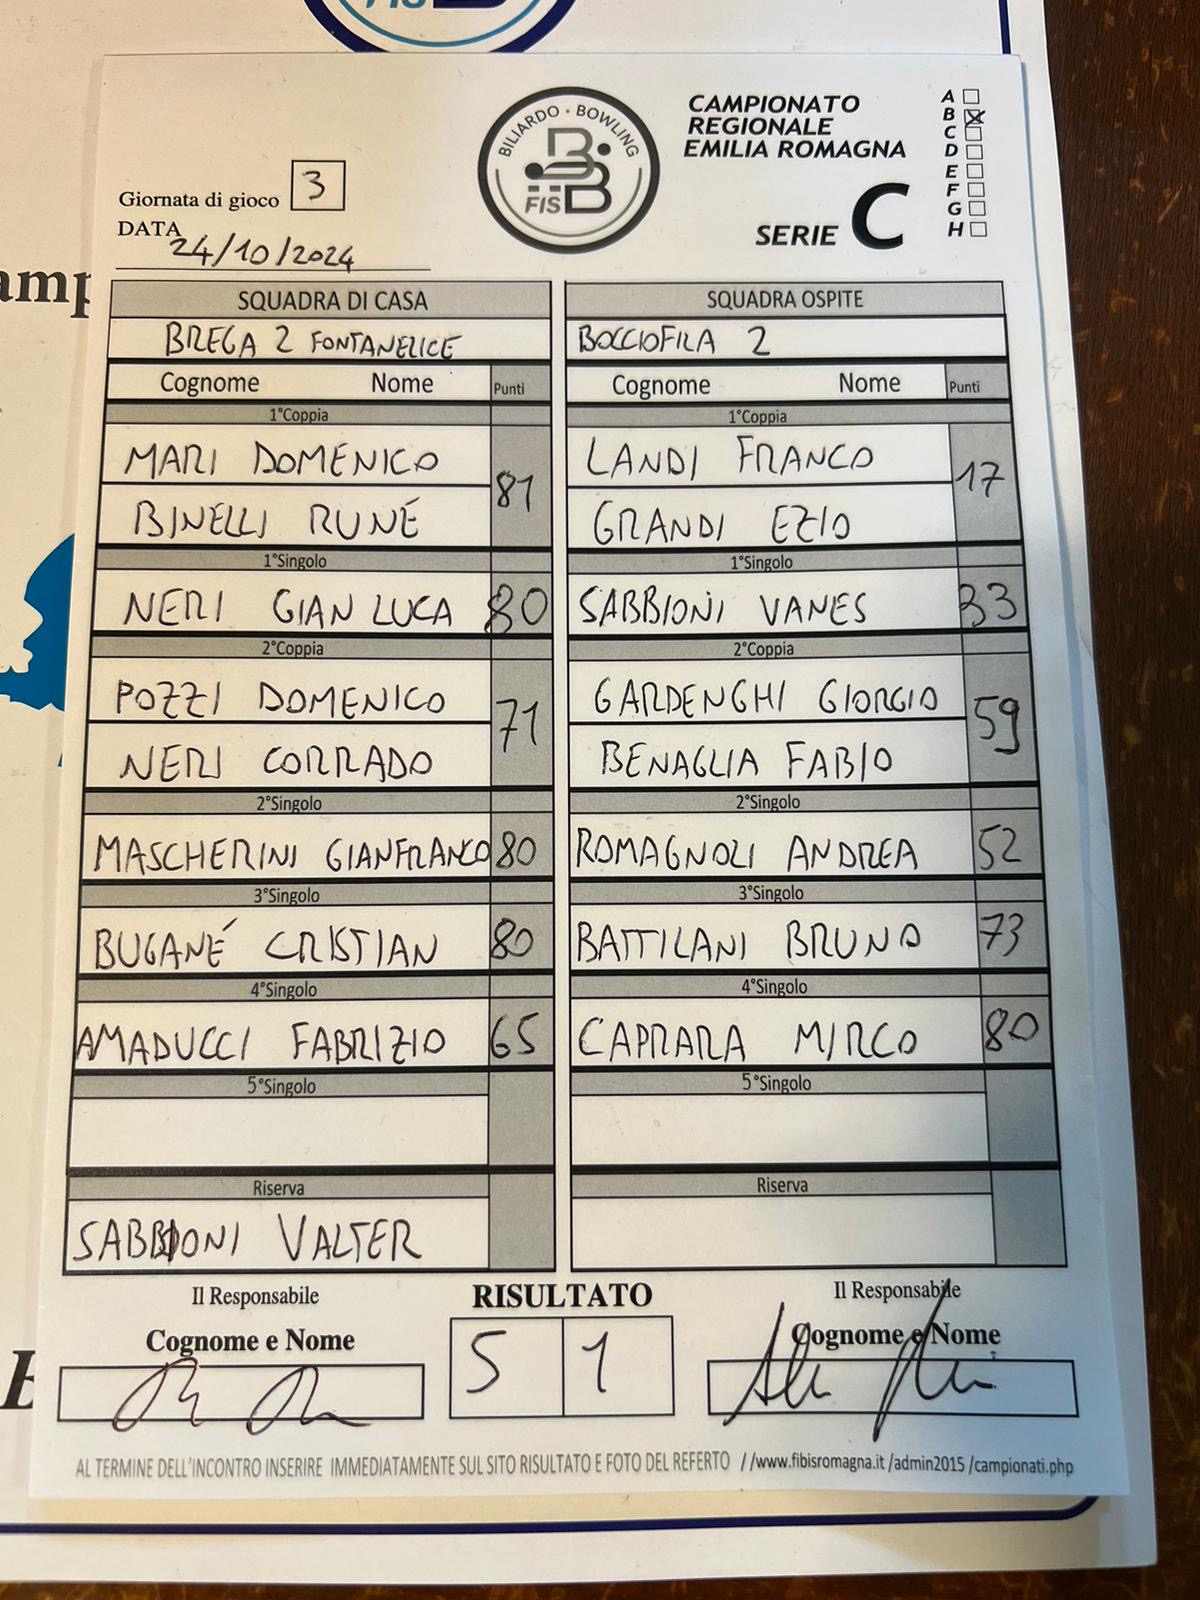 FISB
BILIARDO · BOWLING
FISB
CAMPIONATO
REGIONALE
EMILIA ROMAGNA
SERIE C
A
B X
C
D
E
F
G
H
Giornata di gioco 3
DATA 24/10/2024
amp
SQUADRA DI CASA SQUADRA OSPITE
BREGA 2 FONTANELICE BOCCIOFILA 2
Cognome Nome Punti Cognome Nome Punti
1°Coppia 1°Coppia
MARI DOMENICO 81 LANDI FRANCO 17
BINELLI RUNÉ GRANDI EZIO
1°Singolo 1°Singolo
NERI GIAN LUCA 80 SABBIONI VANES 33
2°Coppia 2°Coppia
POZZI DOMENICO 71 GARDENGHI GIORGIO 59
NERI CORRADO BENAGLIA FABIO
2°Singolo 2°Singolo
MASCHERINI GIANFRANCO 80 ROMAGNOLI ANDREA 52
3°Singolo 3°Singolo
BUGANÉ CRISTIAN 80 BATTILANI BRUNO 73
4°Singolo 4°Singolo
AMADUCCI FABRIZIO 65 CAPRARA MIRCO 80
5°Singolo 5°Singolo
Riserva Riserva
SABBIONI VALTER
Il Responsabile RISULTATO Il Responsabile
Cognome e Nome 5 1 Cognome e Nome
AL TERMINE DELL'INCONTRO INSERIRE IMMEDIATAMENTE SUL SITO RISULTATO E FOTO DEL REFERTO //www.fibisromagna.it /admin2015 /campionati.php